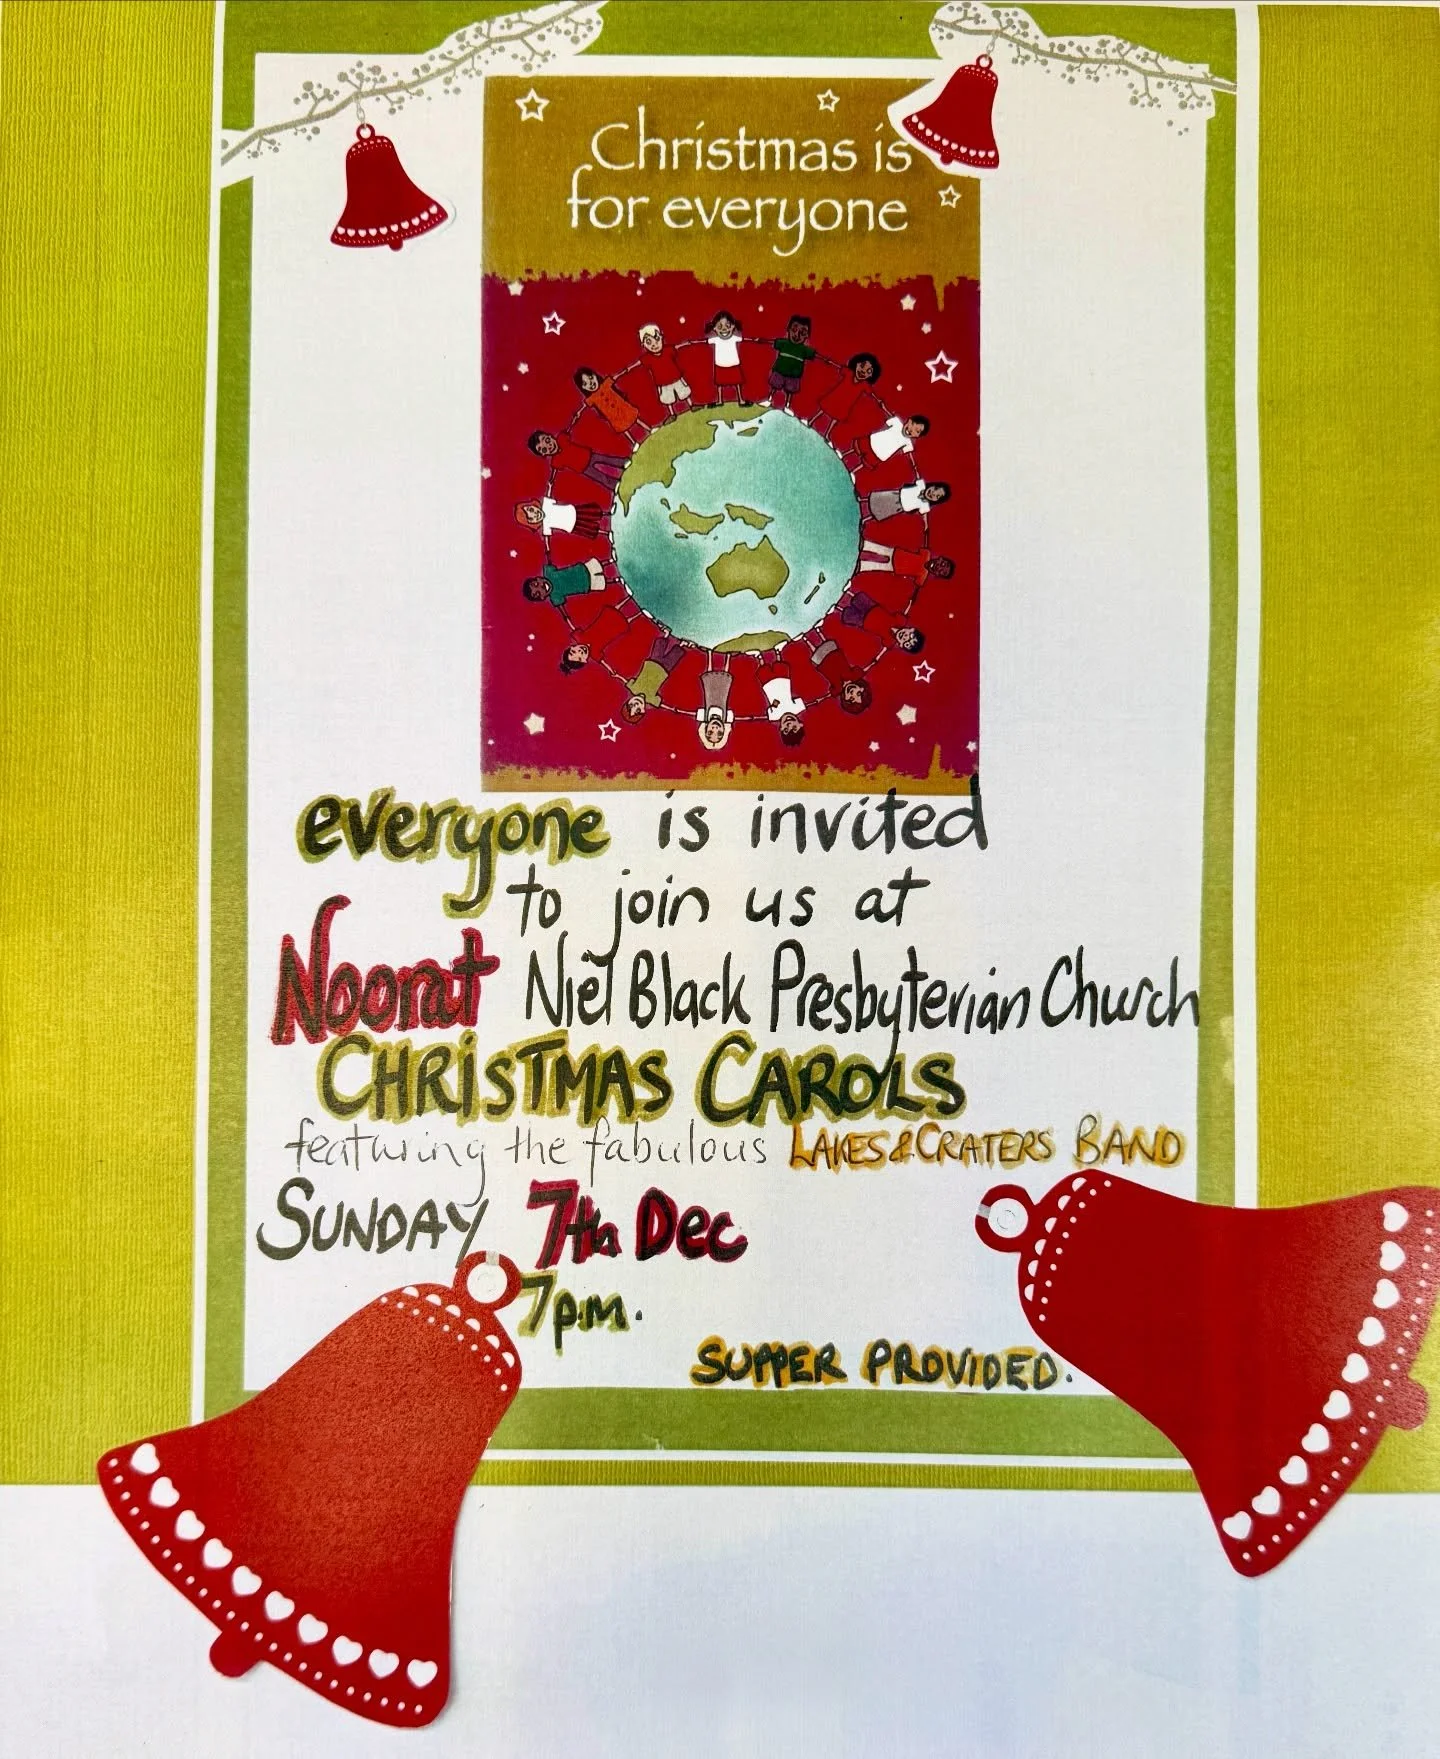 Christmas is
for everyone
everyone is invited
to join us at
Noorat Niel Black Presbyterian Church
CHRiSTMAS CAROLS
featuring the fabulous LAKES & CRATERS BAND
SUNDAY 7th Dec
7p.m.
SUPPER PROVIDED.